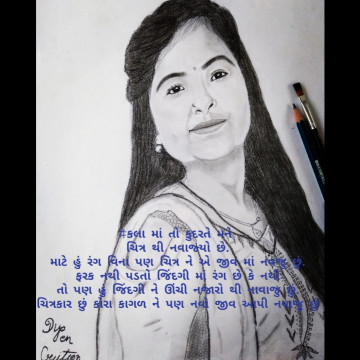 #કલા માં તો કુદરતે મને
ચિત્ર થી નવાજ્યો છે.
માટે હું રંગ વિના પણ ચિત્ર ને એ જીવ માં નવાજુ છું
ફરક નથી પડતો જિંદગી માં રંગ છે કે નથી
તો પણ હું જિંદગી ને ઊંચી નજારો થી નવાજુ છું
ચિત્રકાર છું કોરા કાગળ ને પણ નવો જીવ આપી નવાજુ છું
Dip
en
Creation